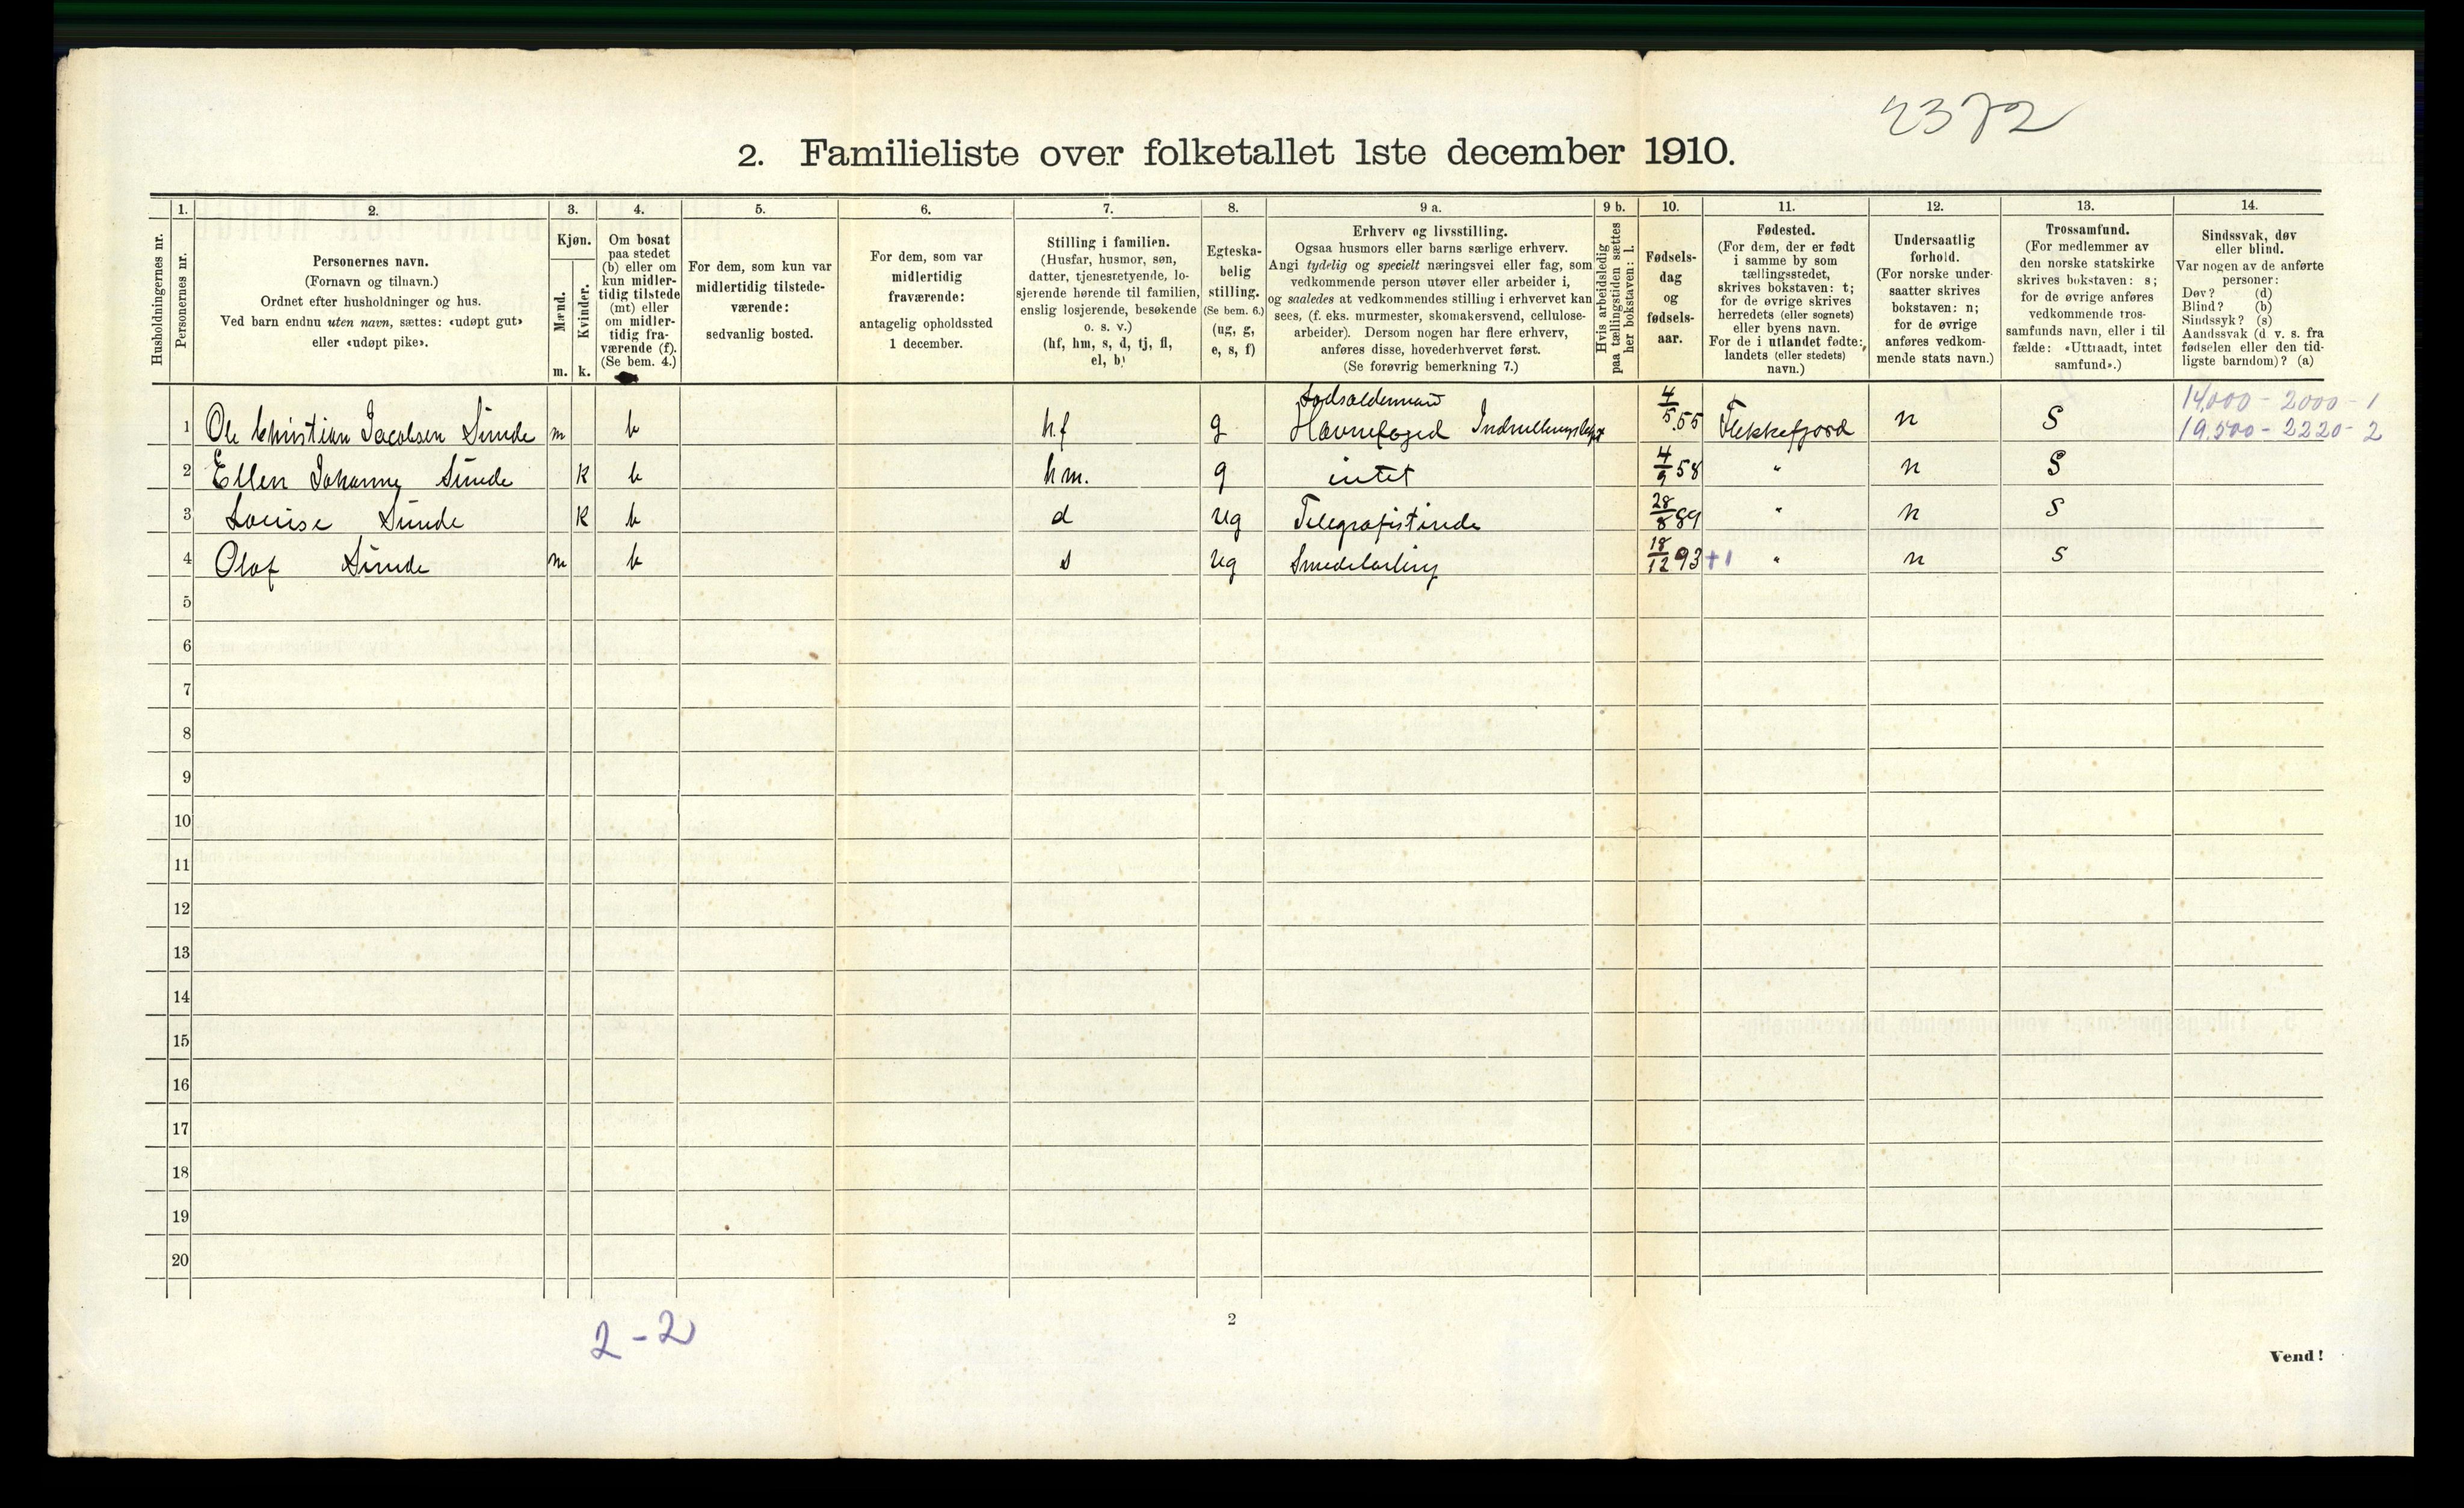 2372
2. Familieliste over folketallet 1ste december 1910.
Husholdningernes nr.
1. Personernes nr.
2. Personernes navn.
(Fornavn og tilnavn.)
Ordnet efter husholdninger og hus.
Ved barn endnu uten navn, sættes: «udøpt gut»
eller «udøpt pike».
3. Kjøn.
Mænd. m.
Kvinder. k.
4. Om bosat
paa stedet
(b) eller om
kun midler-
tidig tilstede
(mt) eller
om midler-
tidig fra-
værende (f).
(Se bem. 4.)
5. For dem, som kun var
midlertidig tilstede-
værende:
sedvanlig bosted.
6. For dem, som var
midlertidig
fraværende:
antagelig opholdssted
1 december.
7. Stilling i familien.
(Husfar, husmor, søn,
datter, tjenestetyende, lo-
sjerende hørende til familien,
enslig losjerende, besøkende
o. s. v.)
(hf, hm, s, d, tj, fl,
el, b)
8. Egteska-
belig
stilling.
(Se bem. 6.)
(ug, g,
e, s, f)
9 a. Erhverv og livsstilling.
Ogsaa husmors eller barns særlige erhverv.
Angi tydelig og specielt næringsvei eller fag, som
vedkommende person utøver eller arbeider i,
og saaledes at vedkommendes stilling i erhvervet kan
sees, (f. eks. murmester, skomakersvend, cellulose-
arbeider). Dersom nogen har flere erhverv,
anføres disse, hovederhvervet først.
(Se forøvrig bemerkning 7.)
9 b. Hvis arbeidsledig
paa tællingstiden sættes
her bokstaven: l.
10. Fødsels-
dag
og
fødsels-
aar.
11. Fødested.
(For dem, der er født
i samme by som
tællingsstedet,
skrives bokstaven: t;
for de øvrige skrives
herredets (eller sognets)
eller byens navn.
For de i utlandet fødte:
landets (eller stedets)
navn.)
12. Undersaatlig
forhold.
(For norske under-
saatter skrives
bokstaven: n;
for de øvrige
anføres vedkom-
mende stats navn.)
13. Trossamfund.
(For medlemmer av
den norske statskirke
skrives bokstaven: s;
for de øvrige anføres
vedkommende tros-
samfunds navn, eller i til
fælde: «Uttraadt, intet
samfund».)
14. Sindssvak, døv
eller blind.
Var nogen av de anførte
personer:
Døv? (d)
Blind? (b)
Sindssyk? (s)
Aandssvak (d. v. s. fra
fødselen eller den tid-
ligste barndom)? (a)
Lodsoldermand 14,000 - 2000 - 1
1 Ole Christian Jacobsen Sunde m b hf g Havnefoged 4/5 55 Flekkefjord n S 19,500 - 2220 - 2
2 Ellen Johanne Sunde K b hm. g intet 4/9 58 " n S
3 Louise Sunde K b d ug Telegrafistinde 28/8 89 " n S
4 Olaf Sunde m b s ug Smedelærling 18/12 93 +1 " n S
5
6
7
8
9
10
11
12
13
14
15
16
17
18
19
20
2 - 2
2
Vend!